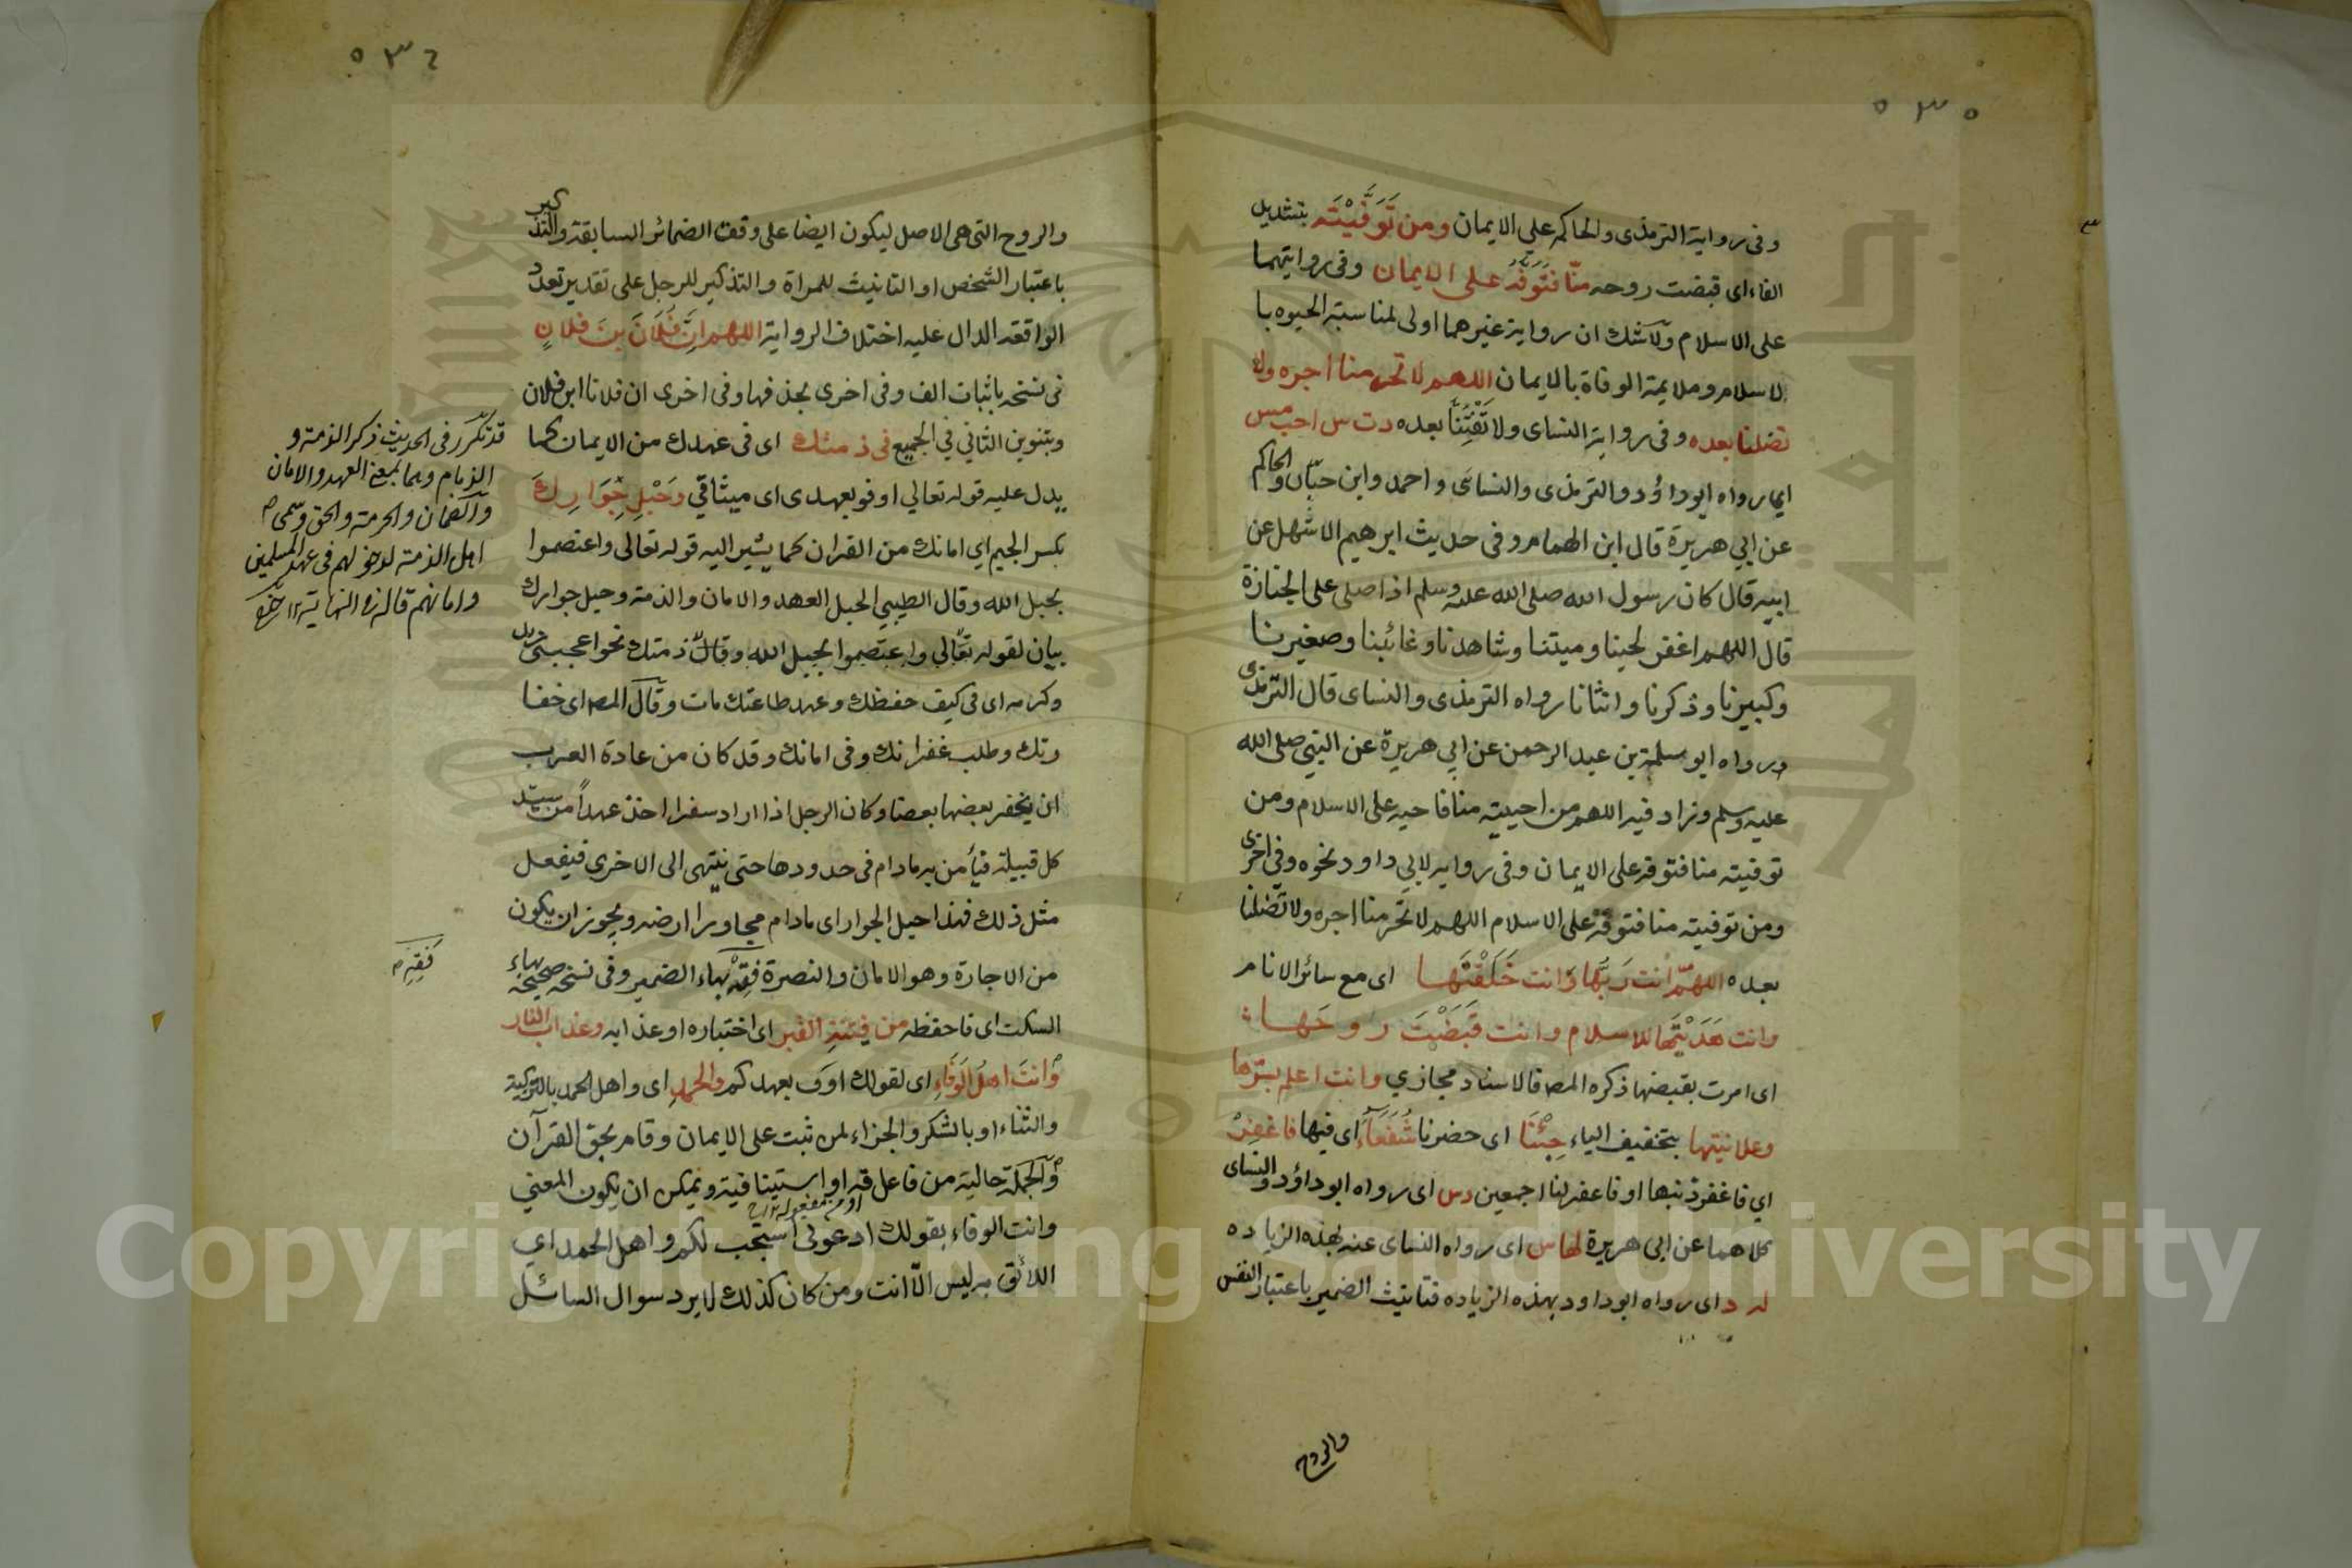 ٥٣٥
وفى رواية الترمذى والحاكم على الايمان ومن تَوَفَّيْتَه بتشديد
الفاء اى قبضت روحه منّا فتَوَفَّهُ على الايمان وفى روايتهما
على الاسلام ولا شك ان رواية غيرهما اولى لمناسبة الحيوه با
لاسلام وملايمة الوفاة بالايمان اللهم لا تحرمنا اجره ولا
تضلنا بعده وفى رواية النساى ولا تَفْتِنَّا بعده د ت س احب مس
اى رواه ابوداؤد والترمذى والنساى واحمد وابن حبّان والحاكم
عن ابي هريرة قال ابن الهمام وفى حديث ابرهيم الاشهل عن
ابيه قال كان رسول الله صلى الله عليه وسلم اذا صلى على الجنازة
قال اللهم اغفر لحينا وميتنا وشاهدنا وغائبنا وصغيرنا
وكبيرنا وذكرنا وانثانا رواه الترمذى والنساى قال الترمذى
ورواه ابو سلمة بن عبد الرحمن عن ابي هريرة عن النبي صلى الله
عليه وسلم وزاد فيه اللهم من احييته منا فاحيه على الاسلام ومن
توفيته منا فتوفه على الايمان وفى رواية لابي داود نحوه وفى اخرى
ومن توفيته منا فتوفه على الاسلام اللهم لا تحرمنا اجره ولا تضلنا
بعده اللهمّ انت رَبُّها وَانت خَلَقْتَها اى مع سائر الانام
وانت هَدَيْتَها للاسلام وانت قَبَضْتَ روحَها
اى امرت بقبضها ذكره المصه فالاسناد مجازي وانت اعلم بسِرّها
وعلانيتها بتخفيف الياء جِئْنَا اى حضرنا شُفَعَآءَ اى فيها فاغفِرْ
اي فاغفر ذنبها او فاغفر لنا اجمعين دس اى رواه ابوداؤد والنساى
كلاهما عن ابى هريرة لها س اى رواه النساى عنه بهذه الزياده
له د اى رواه ابوداود بهذه الزياده فتانيث الضمير باعتبار النفس
والروح
٥٣٦
والروح التى هى الاصل ليكون ايضا على وفق الضمائر السابقة والتذكير
باعتبار الشخص او التانيث للمراة والتذكير للرجل على تقدير تعدد
الواقعة الدال عليه اختلاف الرواية اللهم اِنَّ فُلَانَ بنَ فلانٍ
فى نسخه باثبات الف وفى اخرى بحذفها وفى اخرى ان فلانا ابن فلان
وبتنوين الثاني في الجميع فى ذمتك اى فى عهدك من الايمان كما
يدل عليه قوله تعالي اوفو بعهدى اى ميثاقي وَحَبْلِ جِوَارِكَ
بكسر الجيم اي امانك من القران كما يشير اليه قوله تعالى واعتصموا
بحبل الله وقال الطيبي الحبل العهد والامان والذمة وحبل جوارك
بيان لقوله تعالي واعتصموا بحبل الله وقال ذمتك نحو اعجبنى زيد
وكرمه اى فى كنف حفظك وعهد طاعتك مات وقال المصه اى خفا
رتك وطلب غفرانك وفى امانك وقد كان من عادة العرب
ان يخفر بعضها بعضا وكان الرجل اذا اراد سفرا اخذ عهداً من سيد
كل قبيلة فيأمن به مادام فى حدودها حتى ينتهى الى الاخرى فيفعل
مثل ذلك فهذا حبل الجوار اى مادام مجاورا ارضه ويجوز ان يكون
من الاجارة وهو الامان والنصرة فَقِهِ بهاء الضمير وفى نسخه صحيحه بهاء
السكت اى فاحفظه من فِتنةِ القبر اى اختباره او عذابه وعذاب النار
وَانتَ اهلُ الوَفَاءِ اى لقولك اوف بعهدكم والحمدِ اى واهل الحمد بالتزكية
والثناء او بالشكر والجزاء لمن ثبت على الايمان وقام بحق القرآن
والجملة حالية من فاعل قه او استينافية ويمكن ان يكون المعني
وانت الوفاء بقولك ادعونى استجب لكم واهل الحمد اي
اللائق به ليس الّا انت ومن كان كذلك لا يرد سوال السائل
قد تكرر فى الحديث ذكر الذمة و
الذمام وهما بمعنى العهد والامان
والضمان والحرمة والحق وسمى
اهل الذمة لدخولهم فى عهد المسلمين
وامانهم قاله فى النهاية
فَقِهِ
Copyright © King Saud University